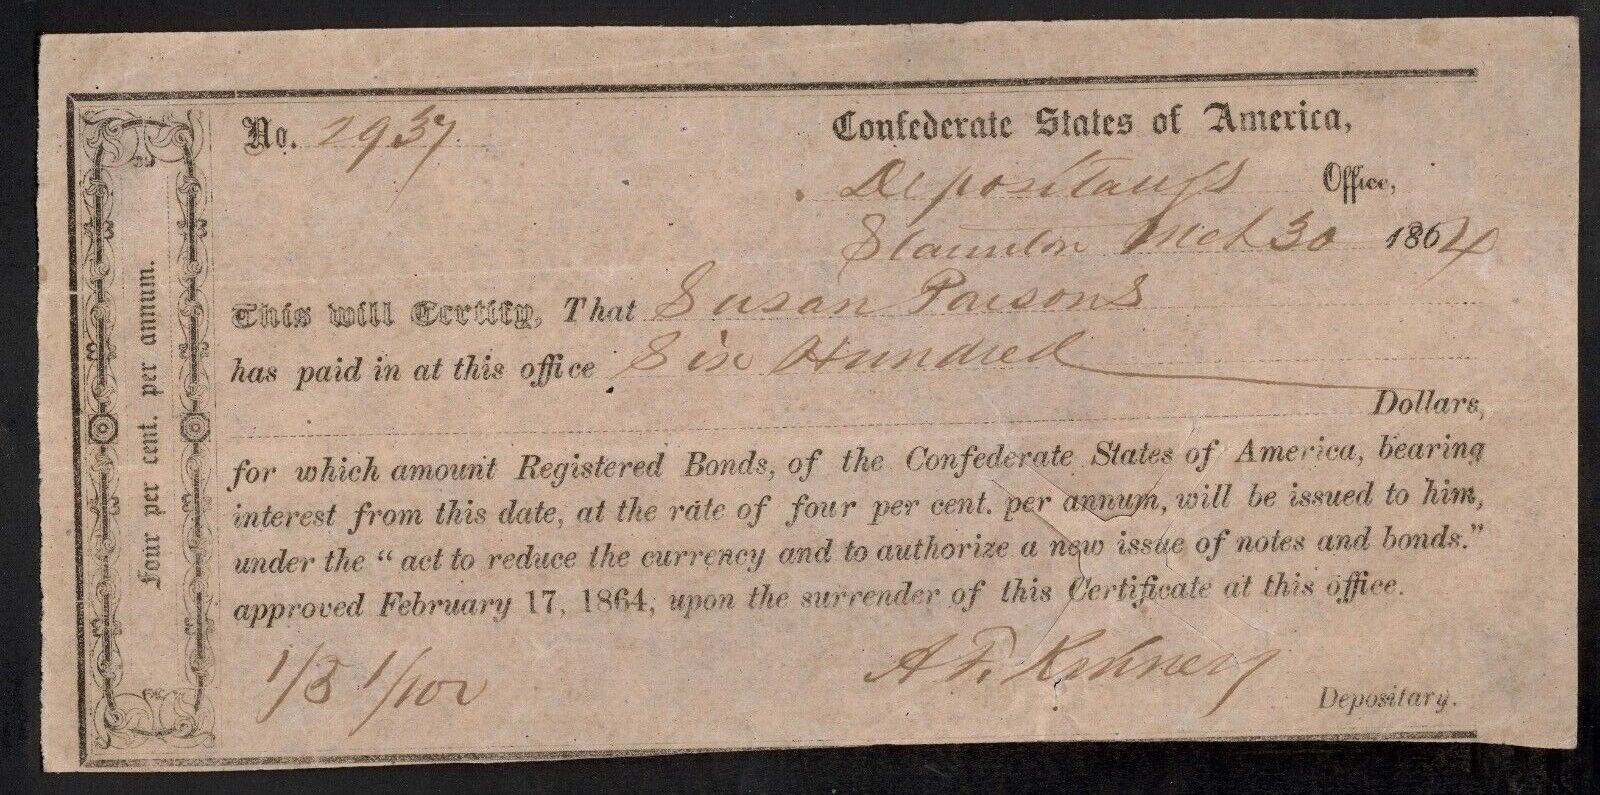 No. 2937.
Confederate States of America,
Depositary's Office,
Staunton Mch 30 1864
This will Certify, That Susan Parsons
has paid in at this office Six Hundred
Dollars,
for which amount Registered Bonds, of the Confederate States of America, bearing
interest from this date, at the rate of four per cent. per annum, will be issued to him,
under the “act to reduce the currency and to authorize a new issue of notes and bonds.”
approved February 17, 1864, upon the surrender of this Certificate at this office.
1/5 1/100
A F. Kinney
Depositary.
Four per cent. per annum.